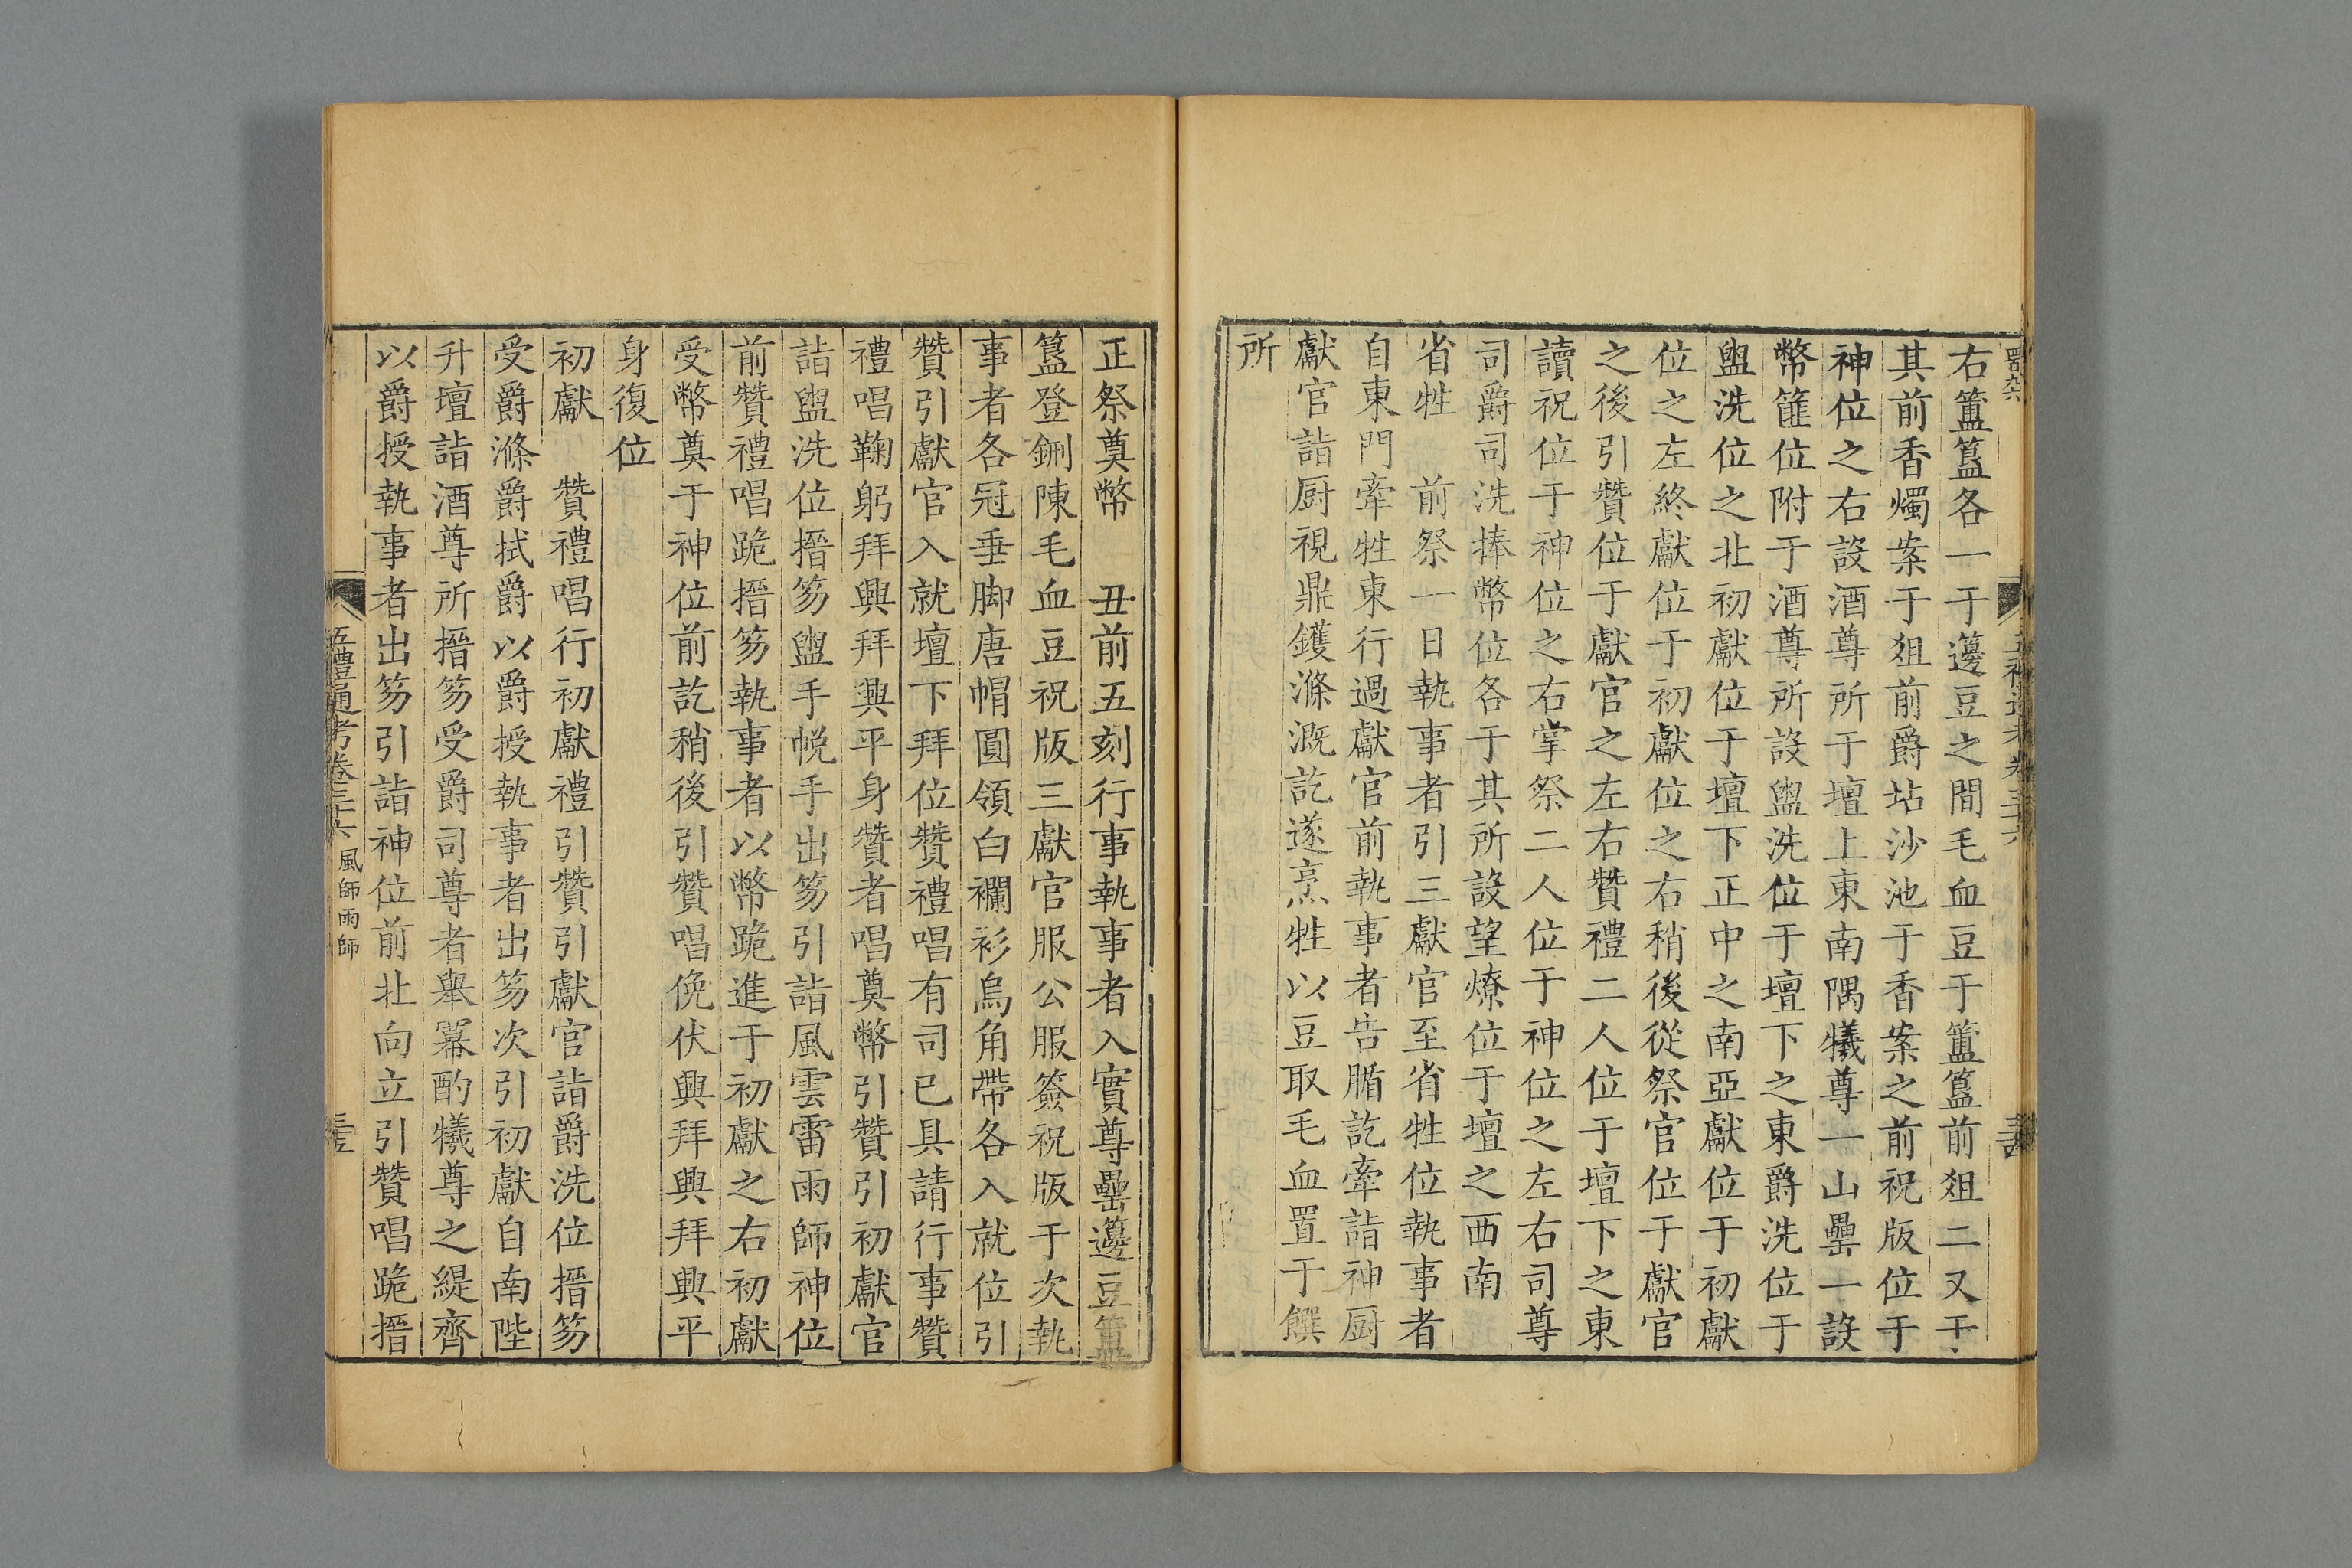 右簠簋各一于籩豆之間毛血豆于簠簋前俎二又于
其前香燭案于俎前爵坫沙池于香案之前祝版位于
神位之右設酒尊所于壇上東南隅犧尊一山罍一設
幣篚位附于酒尊所設盥洗位于壇下之東爵洗位于
盥洗位之北初獻位于壇下正中之南亞獻位于初獻
位之左終獻位于初獻位之右稍後從祭官位于獻官
之後引贊位于獻官之左右贊禮二人位于壇下之東
讀祝位于神位之右掌祭二人位于神位之左右司尊
司爵司洗捧幣位各于其所設望燎位于壇之西南
省牲　前祭一日執事者引三獻官至省牲位執事者
自東門牽牲東行過獻官前執事者告腯訖牽詣神厨
獻官詣厨視鼎鑊滌溉訖遂烹牲以豆取毛血置于饌
所
正祭奠幣　丑前五刻行事執事者入實尊罍籩豆簠
簋登鉶陳毛血豆祝版三獻官服公服簽祝版于次執
事者各冠垂脚唐帽圓領白襴衫烏角帶各入就位引
贊引獻官入就壇下拜位贊禮唱有司已具請行事贊
禮唱鞠躬拜興拜興平身贊者唱奠幣引贊引初獻官
詣盥洗位搢笏盥手帨手出笏引詣風雲雷雨師神位
前贊禮唱跪搢笏執事者以幣跪進于初獻之右初獻
受幣奠于神位前訖稍後引贊唱俛伏興拜興拜興平
身復位
初獻　贊禮唱行初獻禮引贊引獻官詣爵洗位搢笏
受爵滌爵拭爵以爵授執事者出笏次引初獻自南陛
升壇詣酒尊所搢笏受爵司尊者舉羃酌犧尊之緹齊
以爵授執事者出笏引詣神位前北向立引贊唱跪搢
五禮通考卷三十六　風師雨師